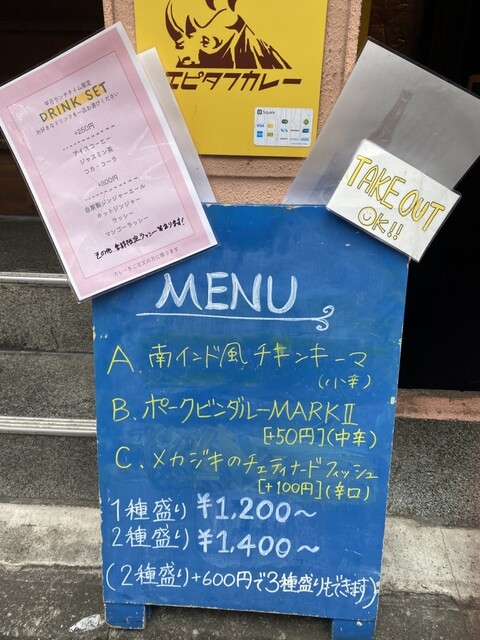 エピタフカレー
Square
平日ランチタイム限定
DRINK SET
お好きなドリンクを一品お選びください
+250円
アイスコーヒー
ジャスミン茶
コカ・コーラ
+300円
自家製ジンジャーエール
ホットジンジャー
ラッシー
マンゴーラッシー
その他 季節限定ラッシーあります!
カレーをご注文の方に限ります
TAKE OUT
OK!!
MENU
A. 南インド風チキンキーマ
(小辛)
B. ポークビンダルーMARKⅡ
[+50円](中辛)
C. メカジキのチェティナードフィッシュ
[+100円](辛口)
1種盛り ¥1,200〜
2種盛り ¥1,400〜
(2種盛り+600円で3種盛りもできます)